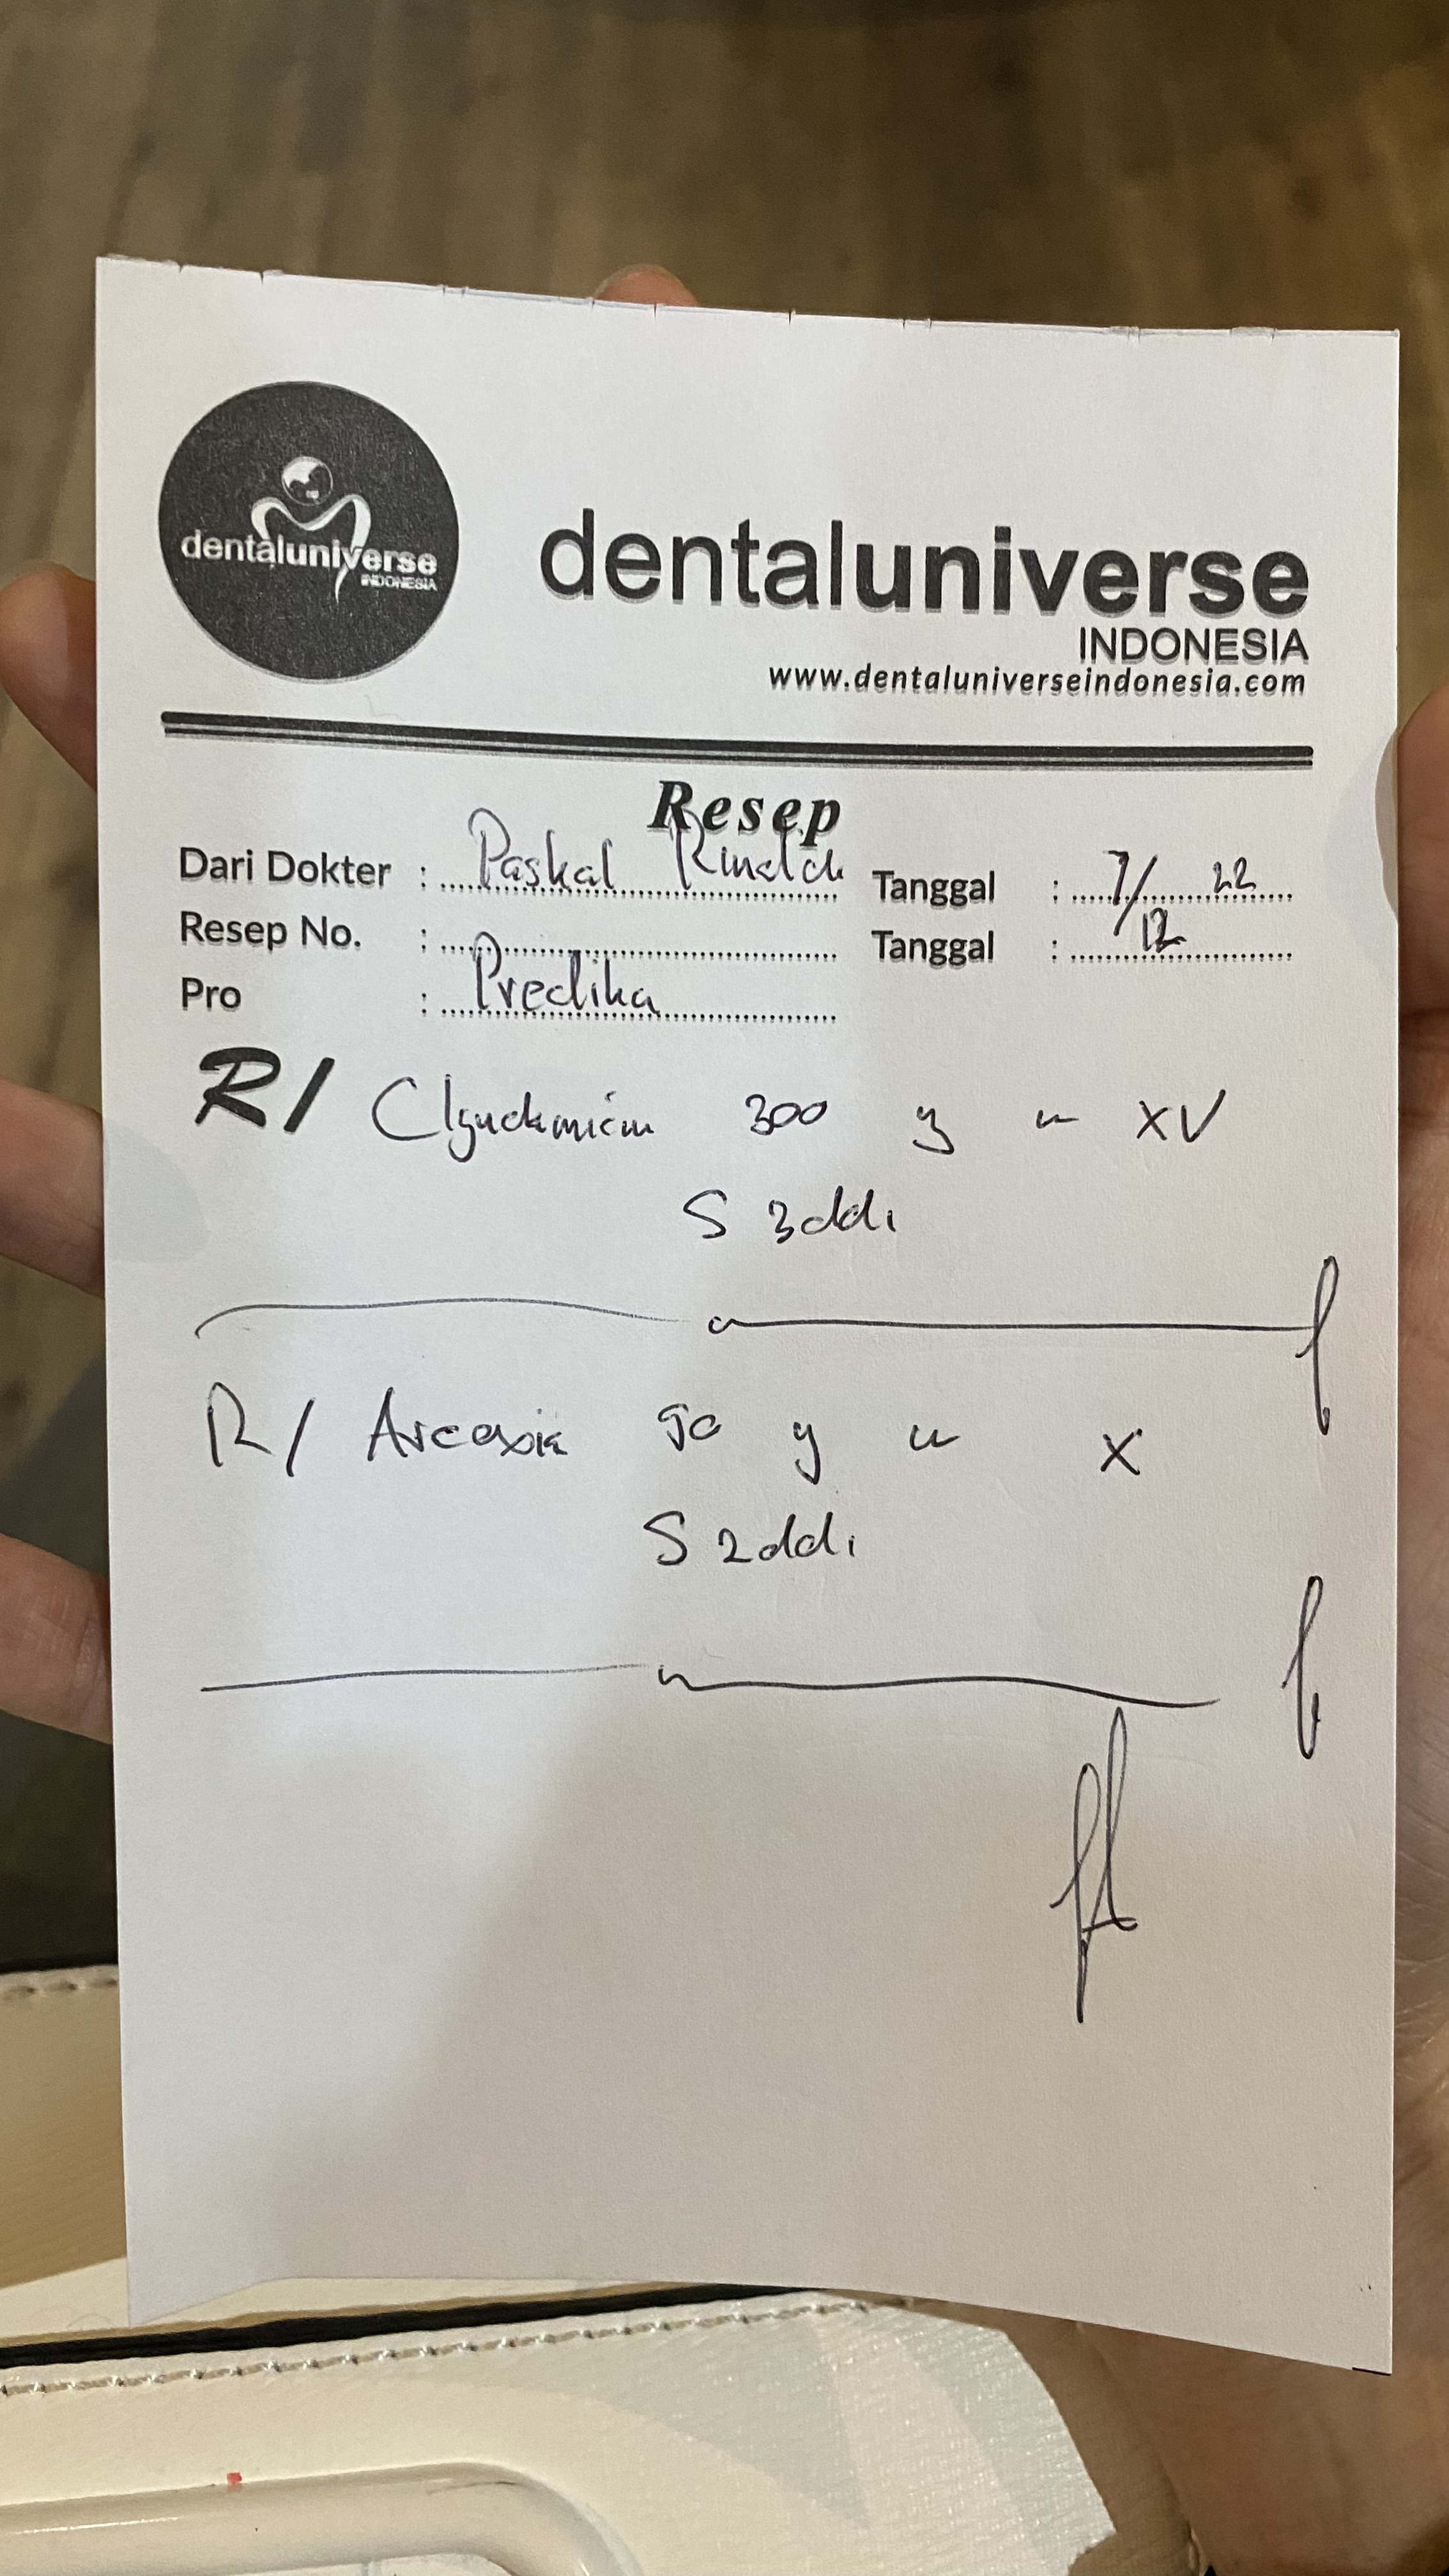 dentaluniverse
INDONESIA
dentaluniverse
INDONESIA
www.dentaluniverseindonesia.com
Resep
Dari Dokter : Paskal Tanggal : 7/12 22
Resep No. : Tanggal :
Pro : Predika
R/ 300 XV
S 3dd1
R/ Arcoxia 90 X
S 2dd1